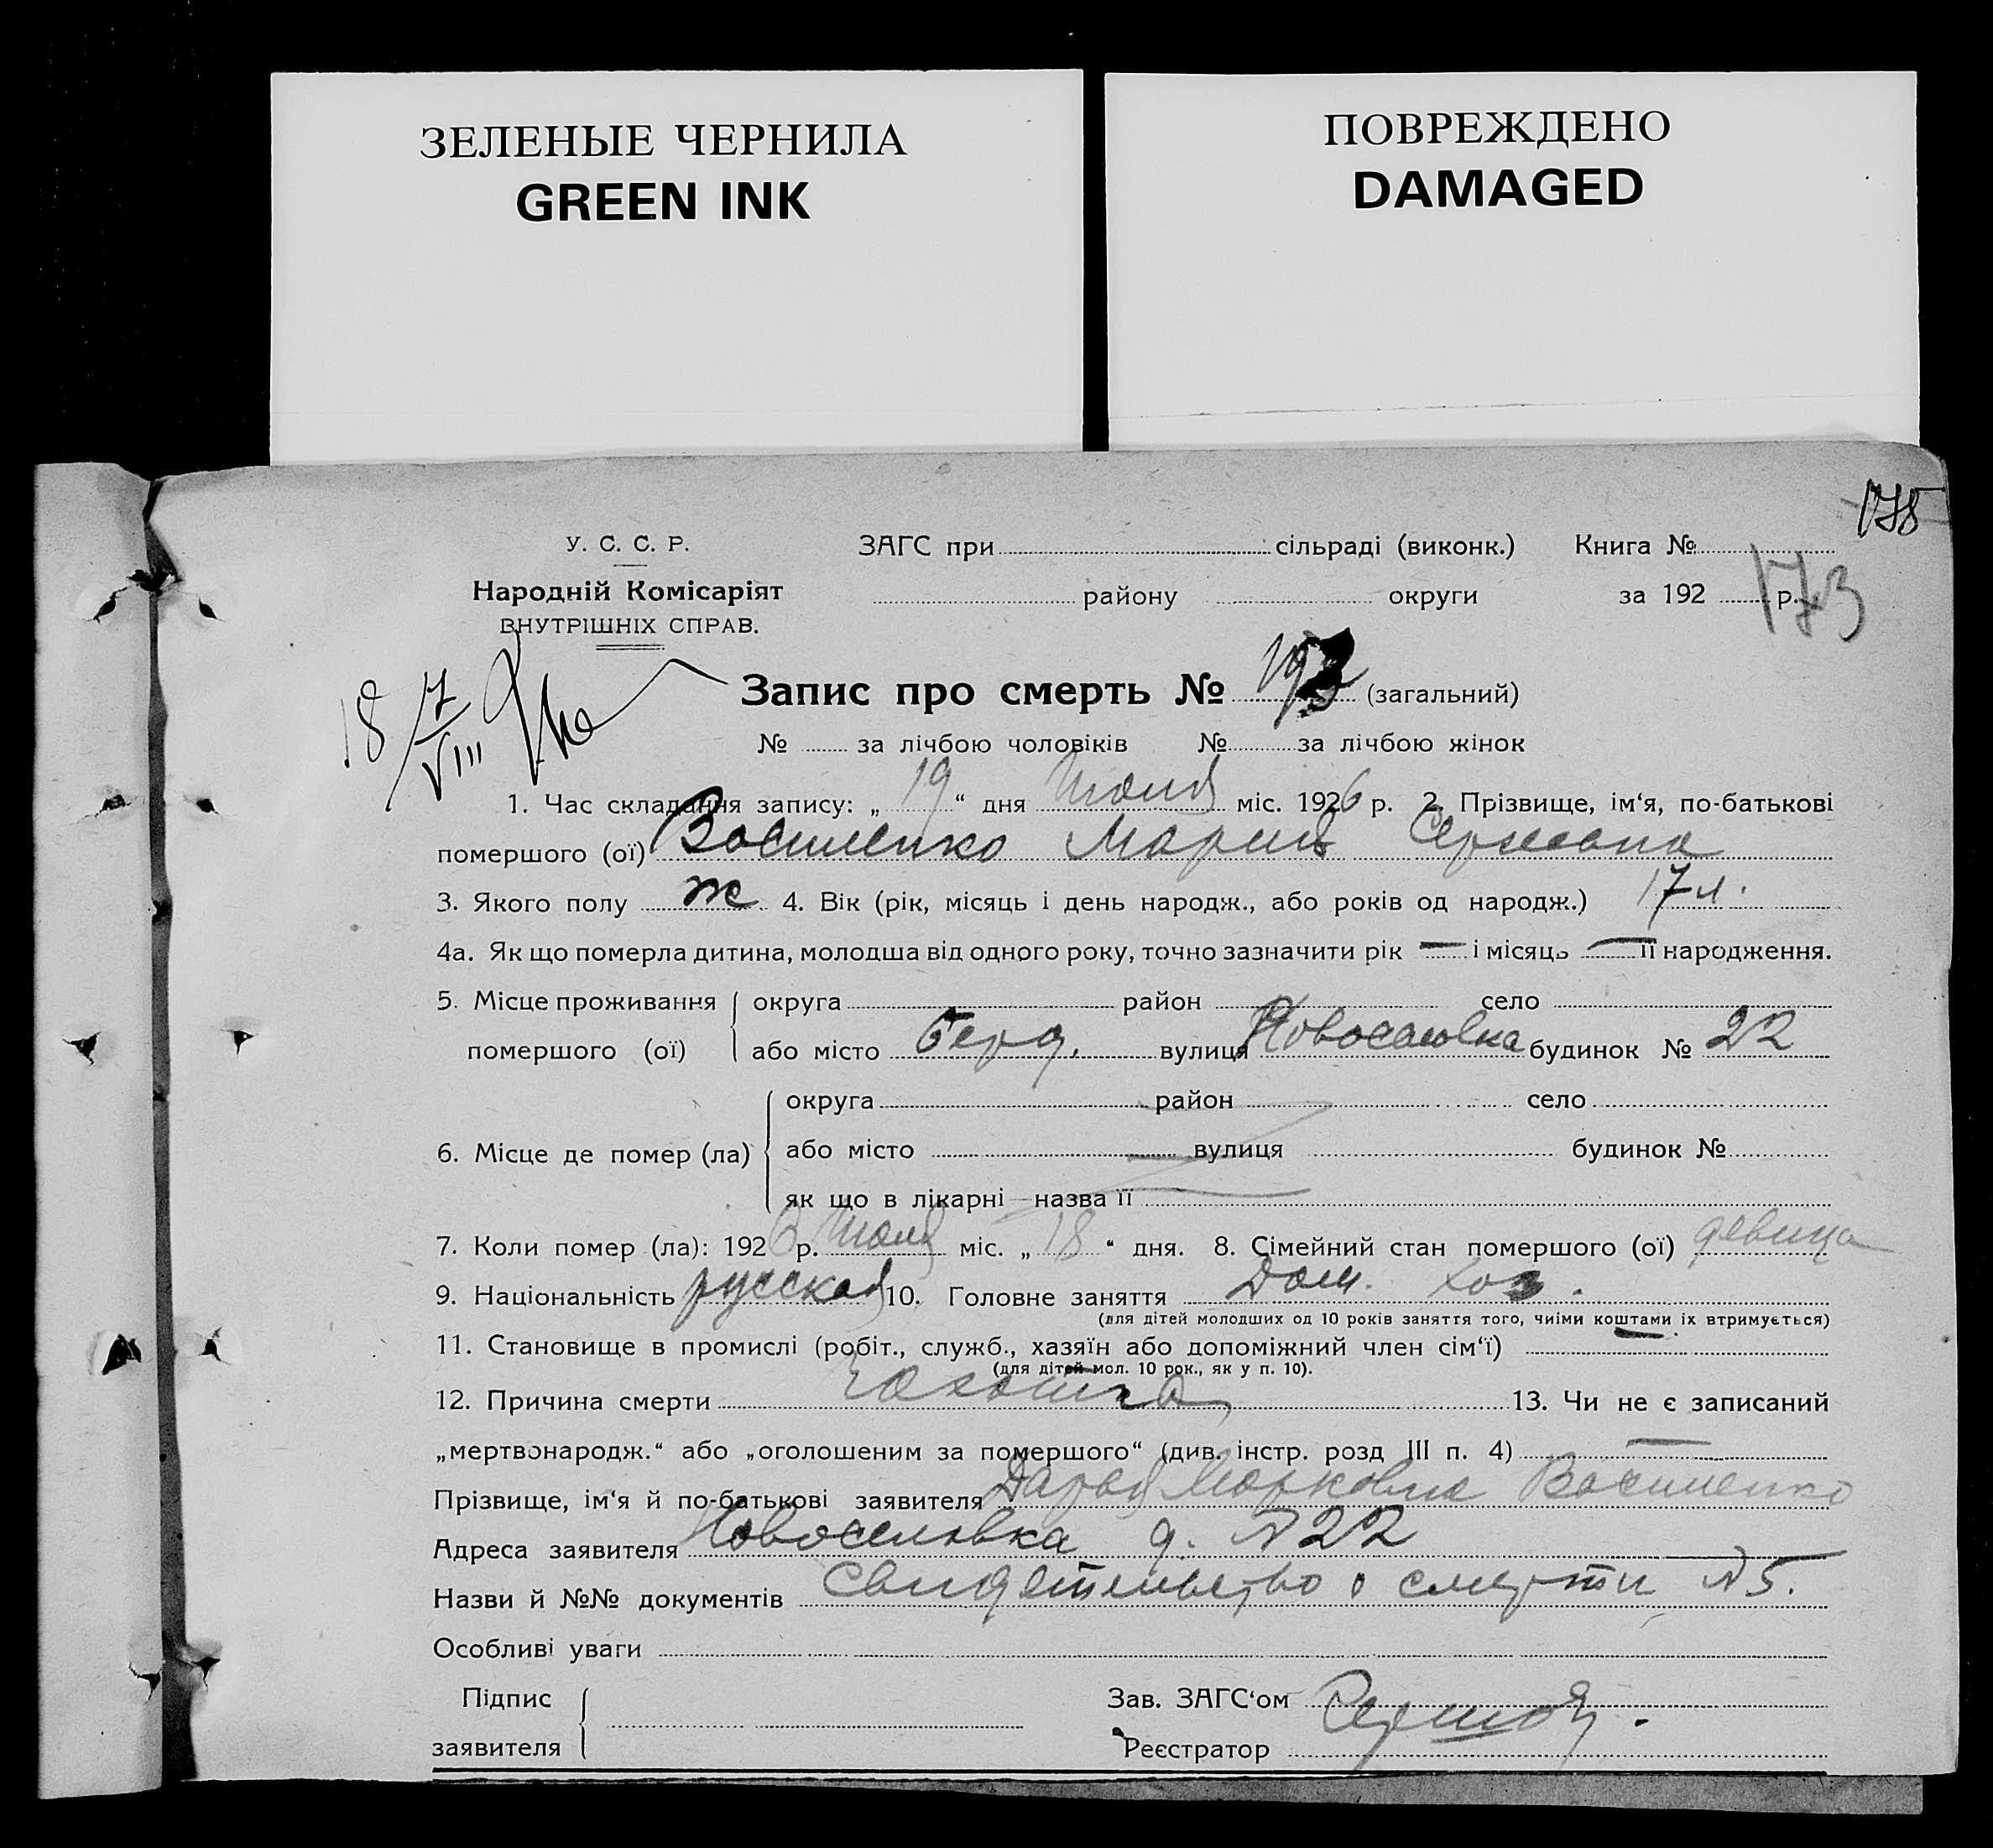 ЗЕЛЕНЫЕ ЧЕРНИЛА
GREEN INK
ПОВРЕЖДЕНО
DAMAGED
У. С. С. Р.
Народній Комісаріят
ВНУТРІШНІХ СПРАВ.
ЗАГС при сільраді (виконк.) Книга №
району округи за 192 р.
173
18 7/VIII
Запис про смерть № (загальний)
№ за лічбою чоловіків № за лічбою жінок
1. Час складання запису: „ 19 “ дня Июля міс. 1926 р. 2. Прізвище, ім‘я, по-батькові
помершого (ої) Василенко Мария
3. Якого полу ж 4. Вік (рік, місяць і день народж., або років од народж.) 17 л.
4а. Як що померла дитина, молодша від одного року, точно зазначити рік — і місяць — її народження.
5. Місце проживання округа район село
помершого (ої) або місто Берд. вулиця Новоселовка будинок № 22
округа район село
6. Місце де помер (ла) або місто вулиця будинок №
як що в лікарні — назва її
7. Коли помер (ла): 1926 р. Июля міс. „ 18 “ дня. 8. Сімейний стан помершого (ої) девица
9. Національність русская 10. Головне заняття Дом. хоз.
(для дітей молодших од 10 років заняття того, чиїми коштами їх втримується)
11. Становище в промислі (робіт., служб., хазяїн або допоміжний член сім‘ї) —
(для дітей мол. 10 рок., як у п. 10).
12. Причина смерти Чахотка 13. Чи не є записаний
„мертвонародж.“ або „оголошеним за помершого“ (див. інстр. розд III п. 4) —
Прізвище, ім‘я й по-батькові заявителя Дарья Марковна Василенко
Адреса заявителя Новоселовка д. № 22
Назви й №№ документів Свидетельство о смерти № 5.
Особливі уваги
Підпис
заявителя
Зав. ЗАГС‘ом
Реєстратор